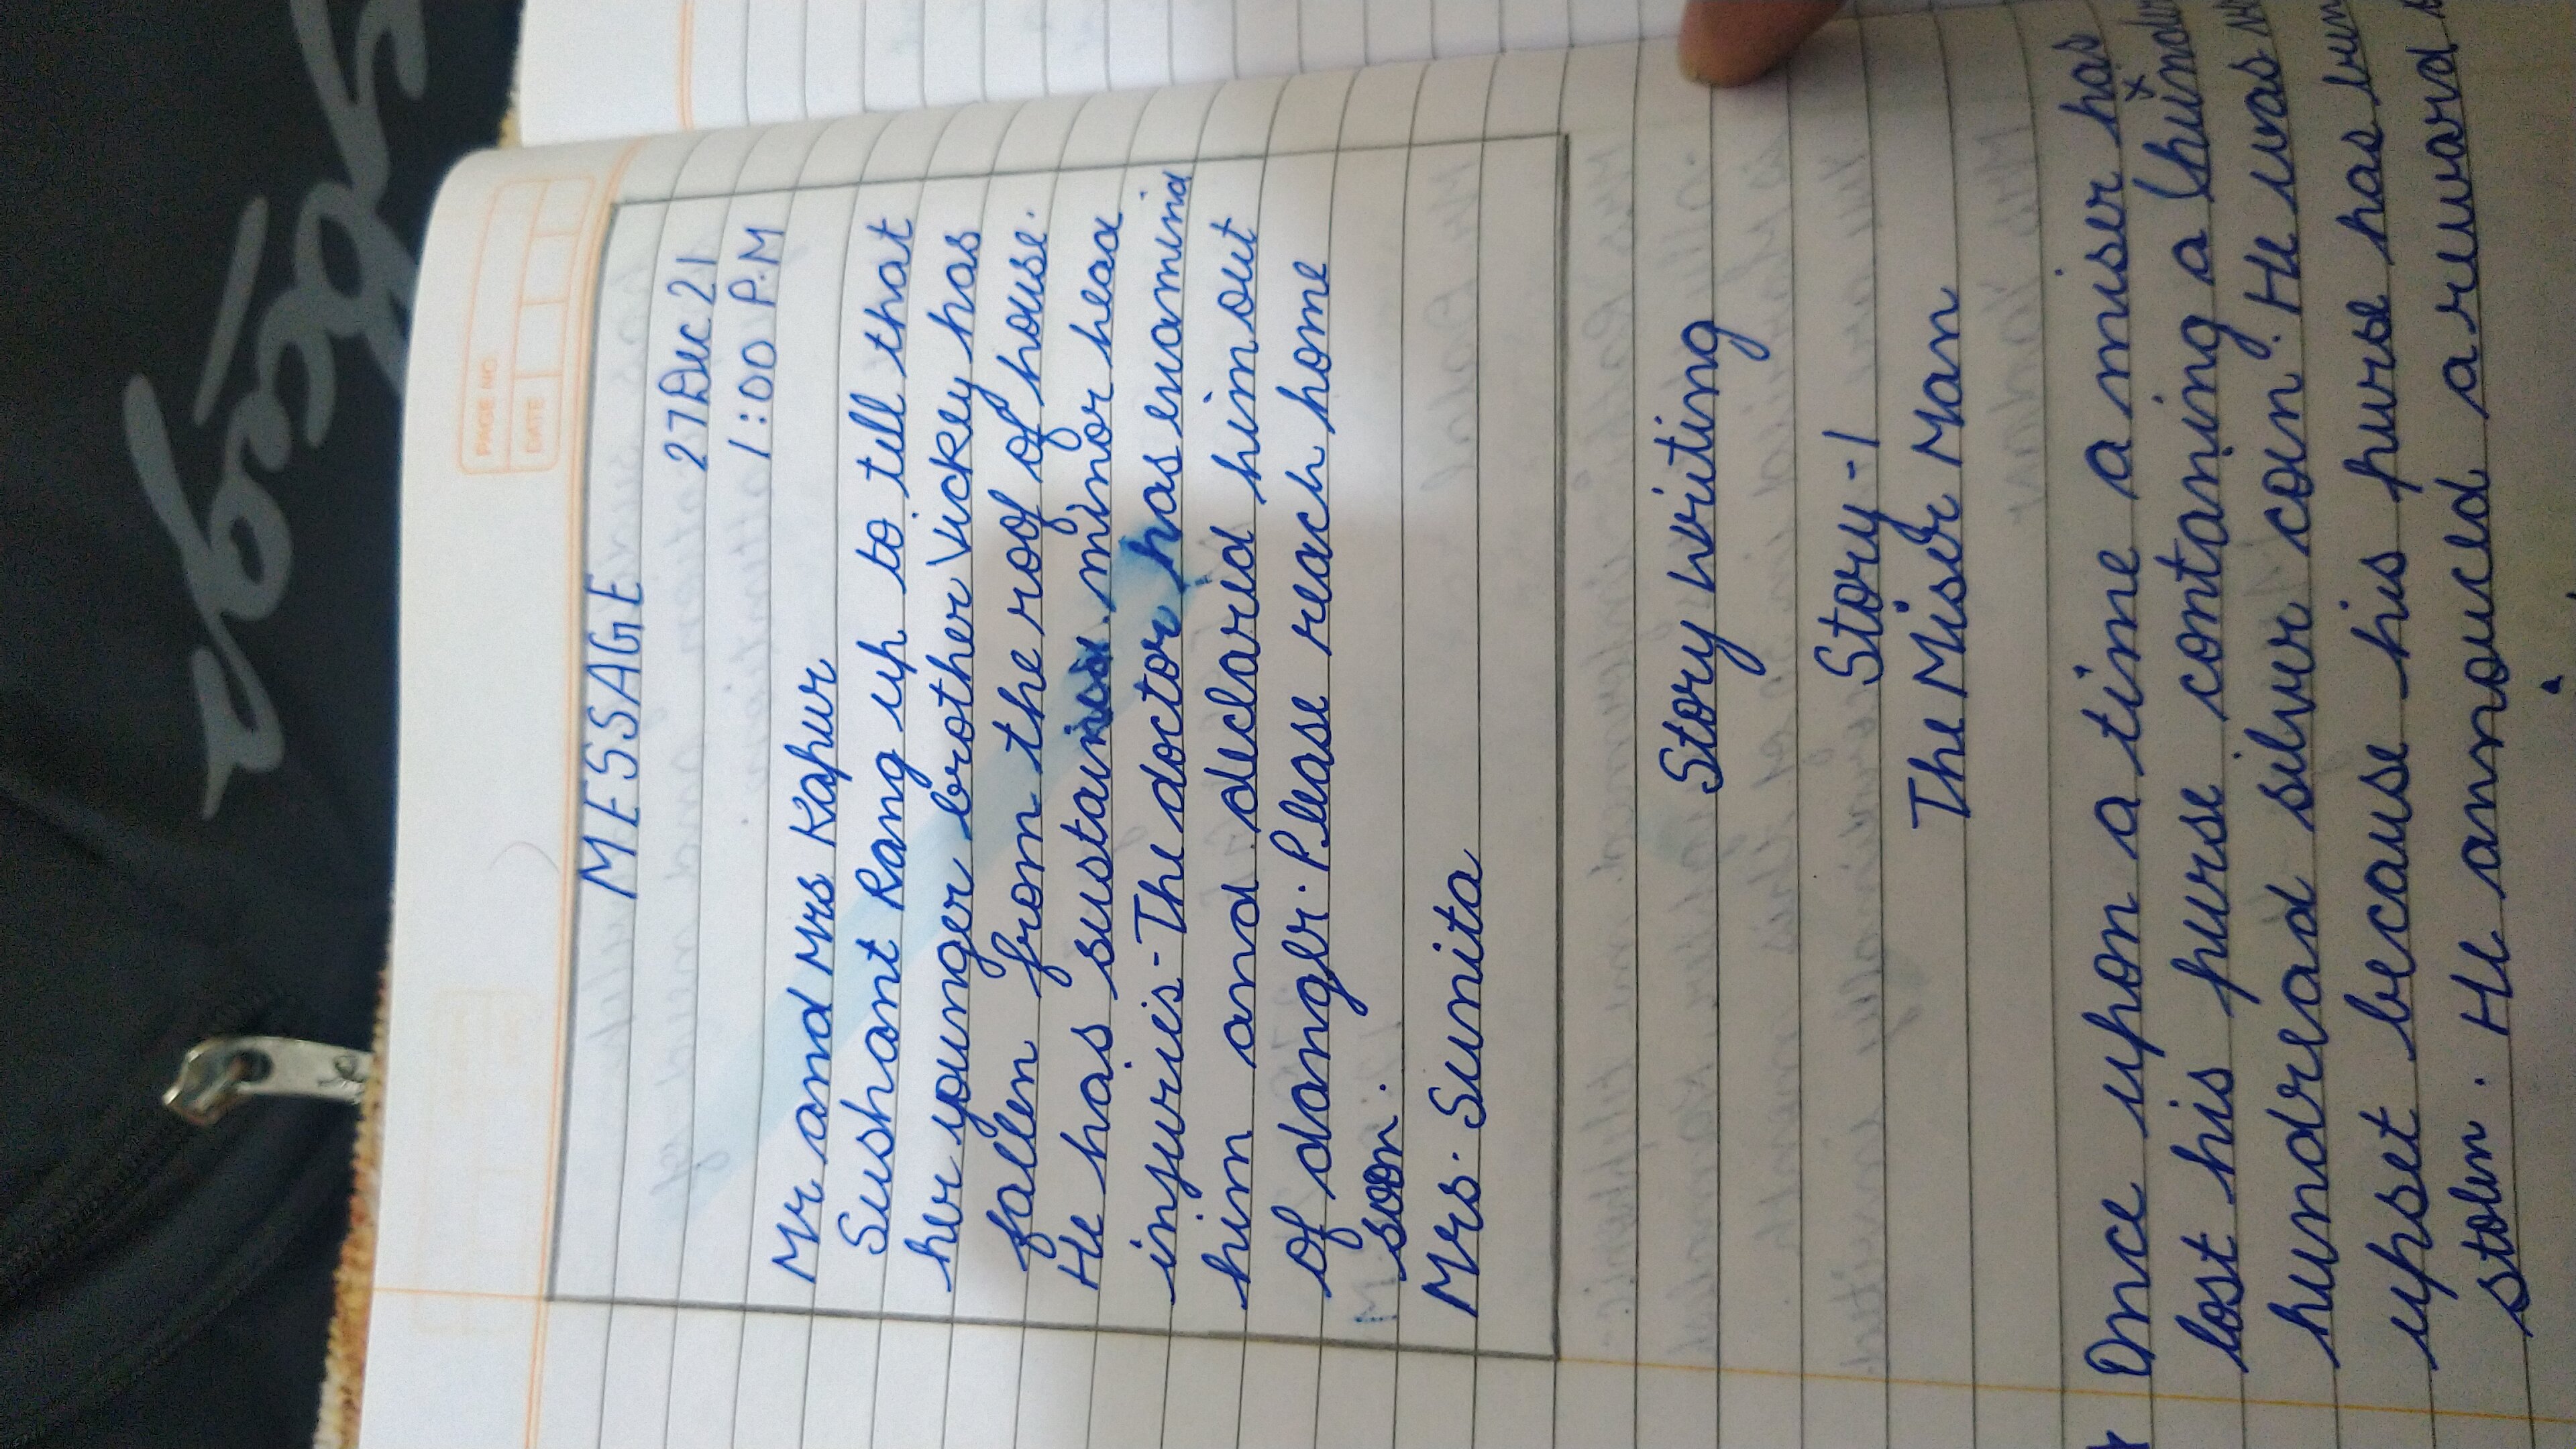 PAGE NO.
DATE
MESSAGE
27 Dec 21
1:00 P.M
Mr and Mrs Kapur
Sushant Rang up to tell that
her younger brother Vickey has
fallen from the roof of house.
He has sustained minor head
injuries - The doctor has examind
him and declared him out
of danger. Please reach home
soon.
Mrs. Sunita
Story writing
Story - 1
The Miser Man
Once upon a time a miser has
lost his purse contaning a
hundread silver coin. He was
upset because his purse has
stolen. He annouced a reward